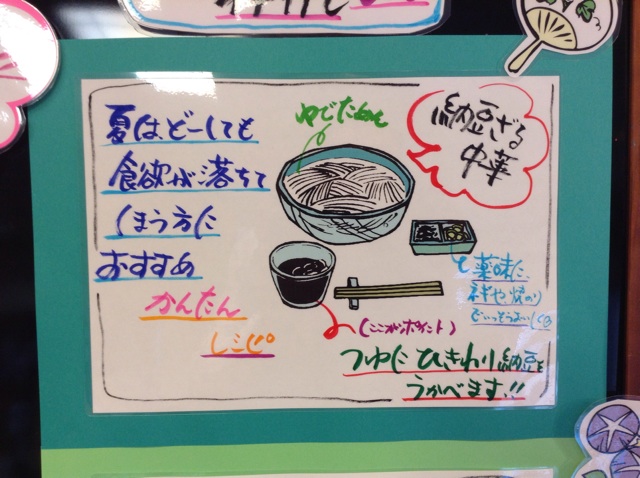 夏はどーしても
食欲が落ちて
しまう方に
おすすめ
かんたん
レシピ
ゆでためん
納豆ざる
中華
薬味に、
ネギや、焼のり
(ここがポイント)
つゆに ひきわり納豆を
うかべます!!